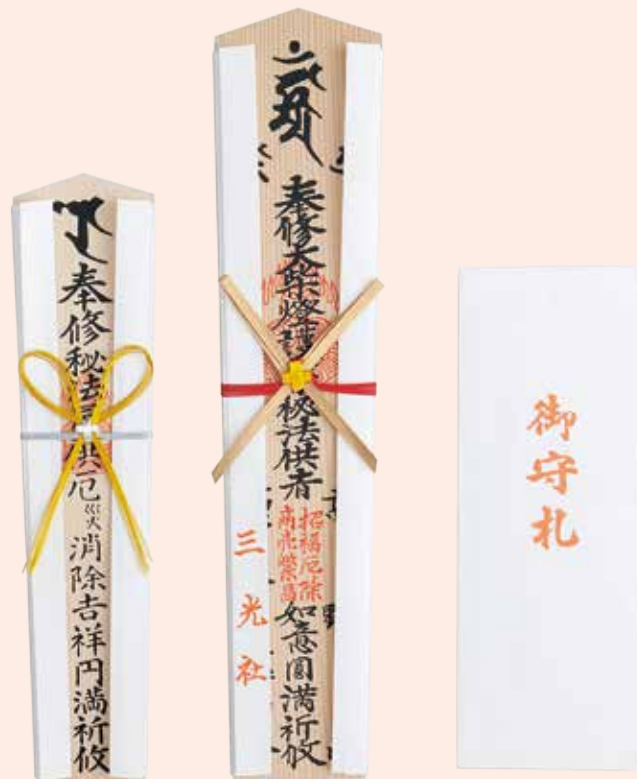 奉修秘法供厄災消除吉祥円満祈攸
奉修大柴燈護秘法供者
招福厄除
商売繁昌
如意圓満祈攸
三光社
御守札